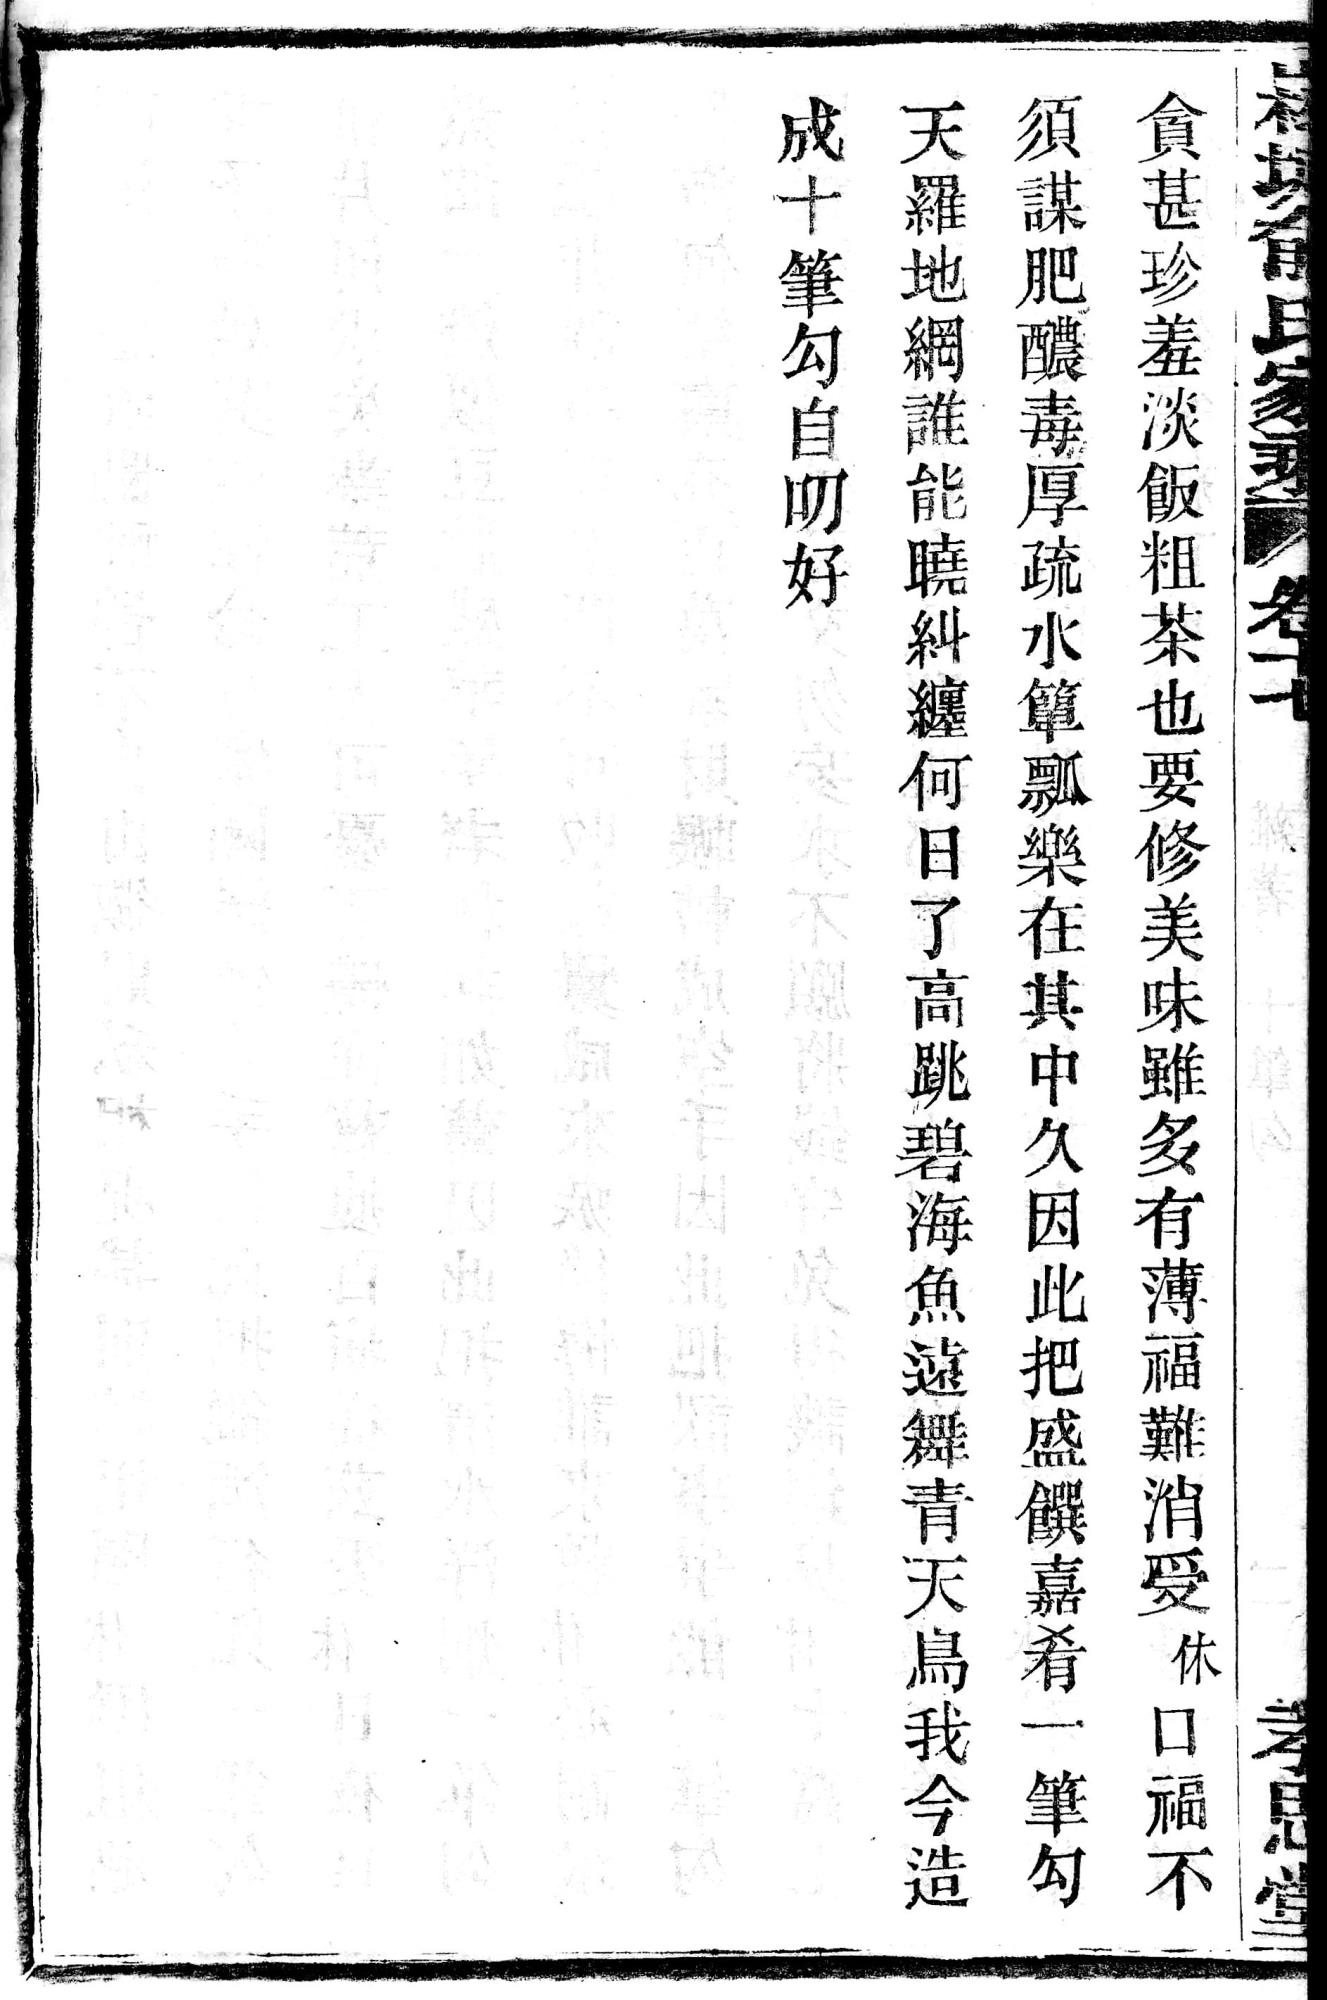 貪甚珍羞淡飯粗茶也要修美味雖多有薄福難消受休口福不
須謀肥醲毒厚疏水簞瓢樂在其中久因此把盛饌嘉肴一筆勾
天羅地網誰能曉糾纏何日了高跳碧海魚遠舞青天鳥我今造
成十筆勾自叨好
俞氏家乘 卷十七
雜著 十筆勾
二
孝思堂